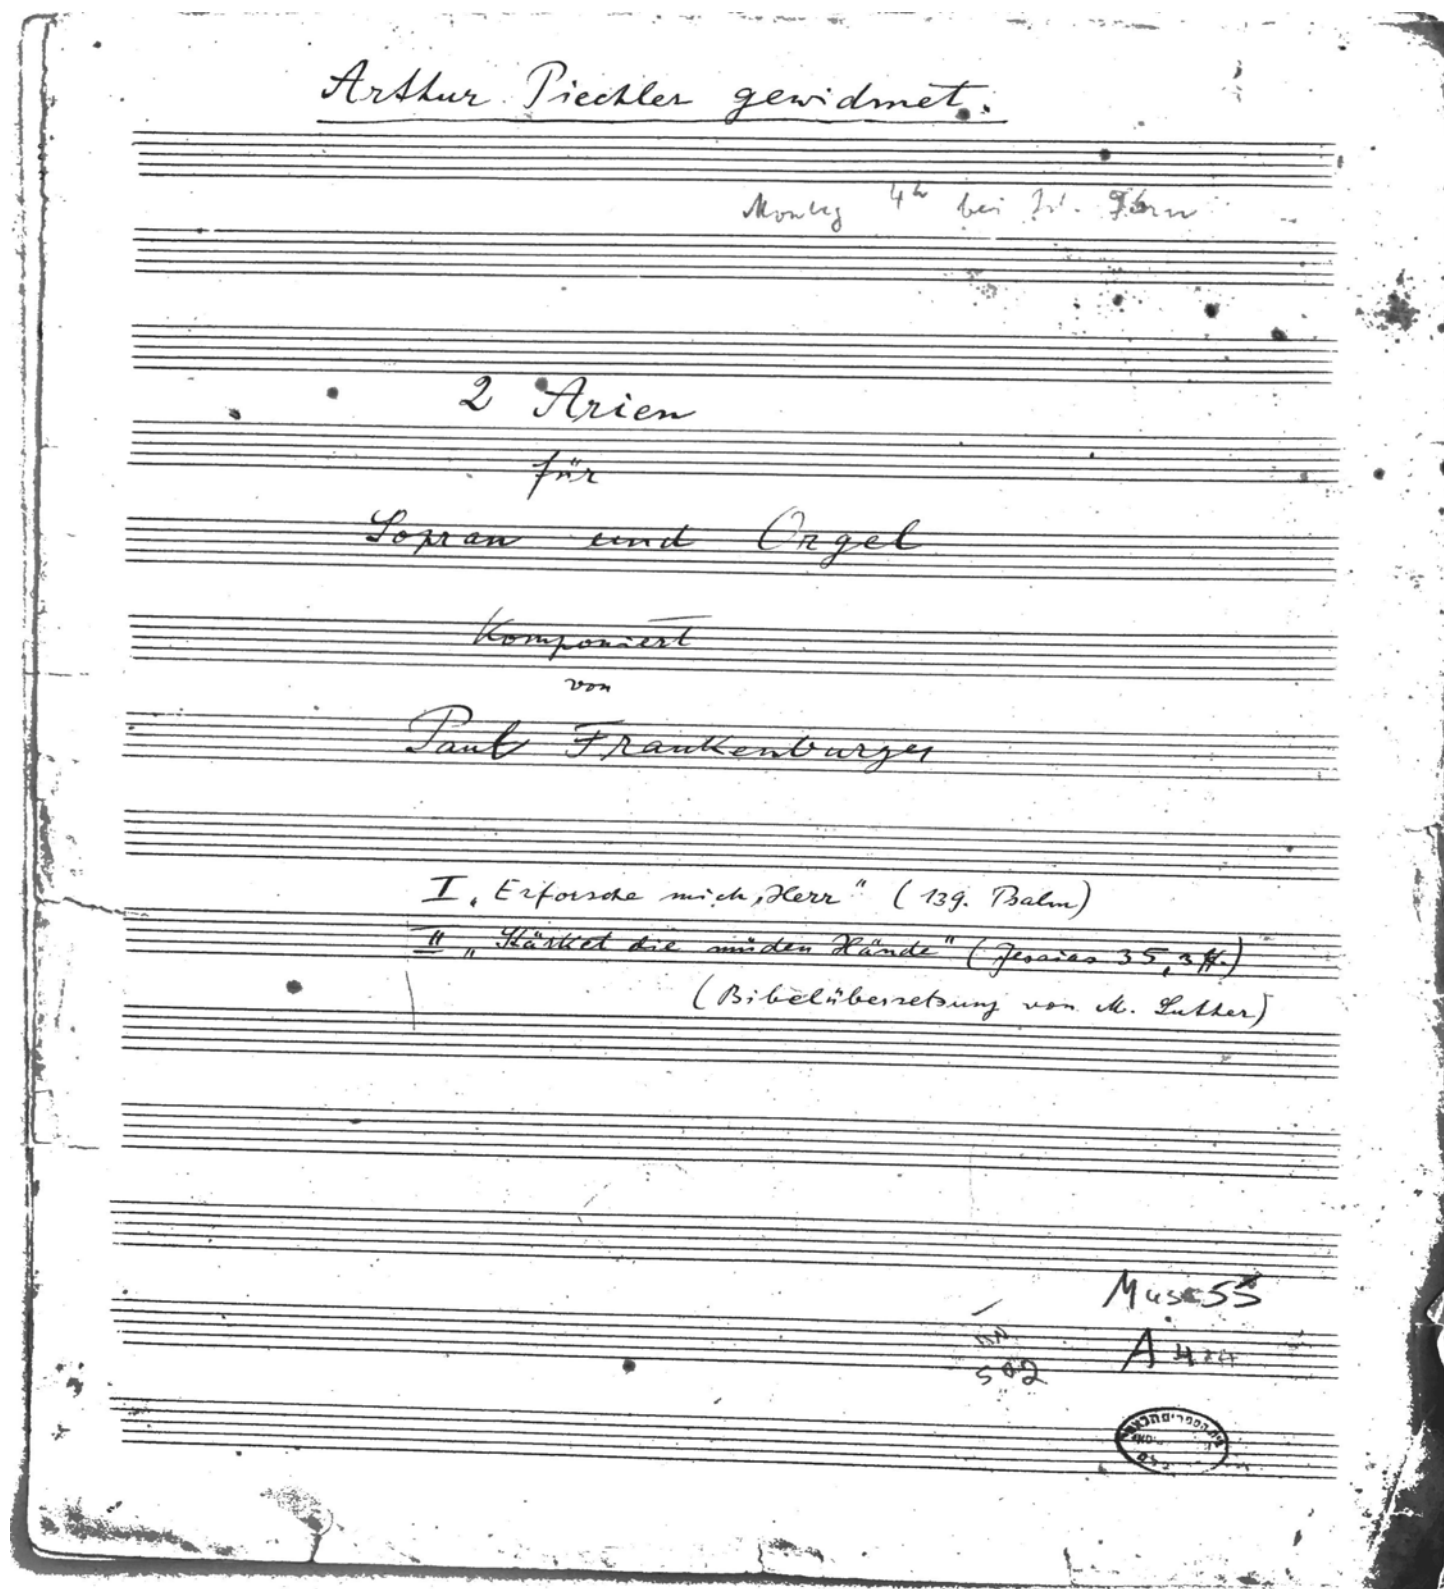 Arthur Piechler gewidmet.
Montag 4h bei
2 Arien
für
Sopran und Orgel
Komponiert
von
Paul Frankenburger
I. „Erforsche mich, Herr" (139. Psalm)
II „Stärket die müden Hände" (Jesaias 35, 3 ff.)
(Bibelübersetzung von M. Luther)
Mus 55
A
502